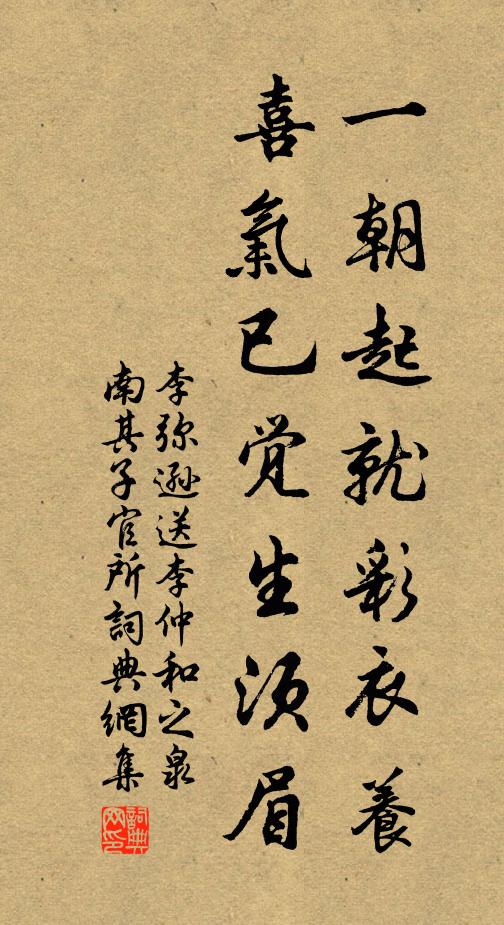 一朝起就彩衣養
喜氣已覚生須眉
李弥遜送李仲和之泉
南其子官所詞典網集
詞典
网印